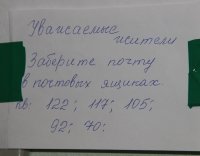 Уважаемые
жители
Заберите почту
в почтовых ящиках
кв: 122; 117; 105;
92; 70;